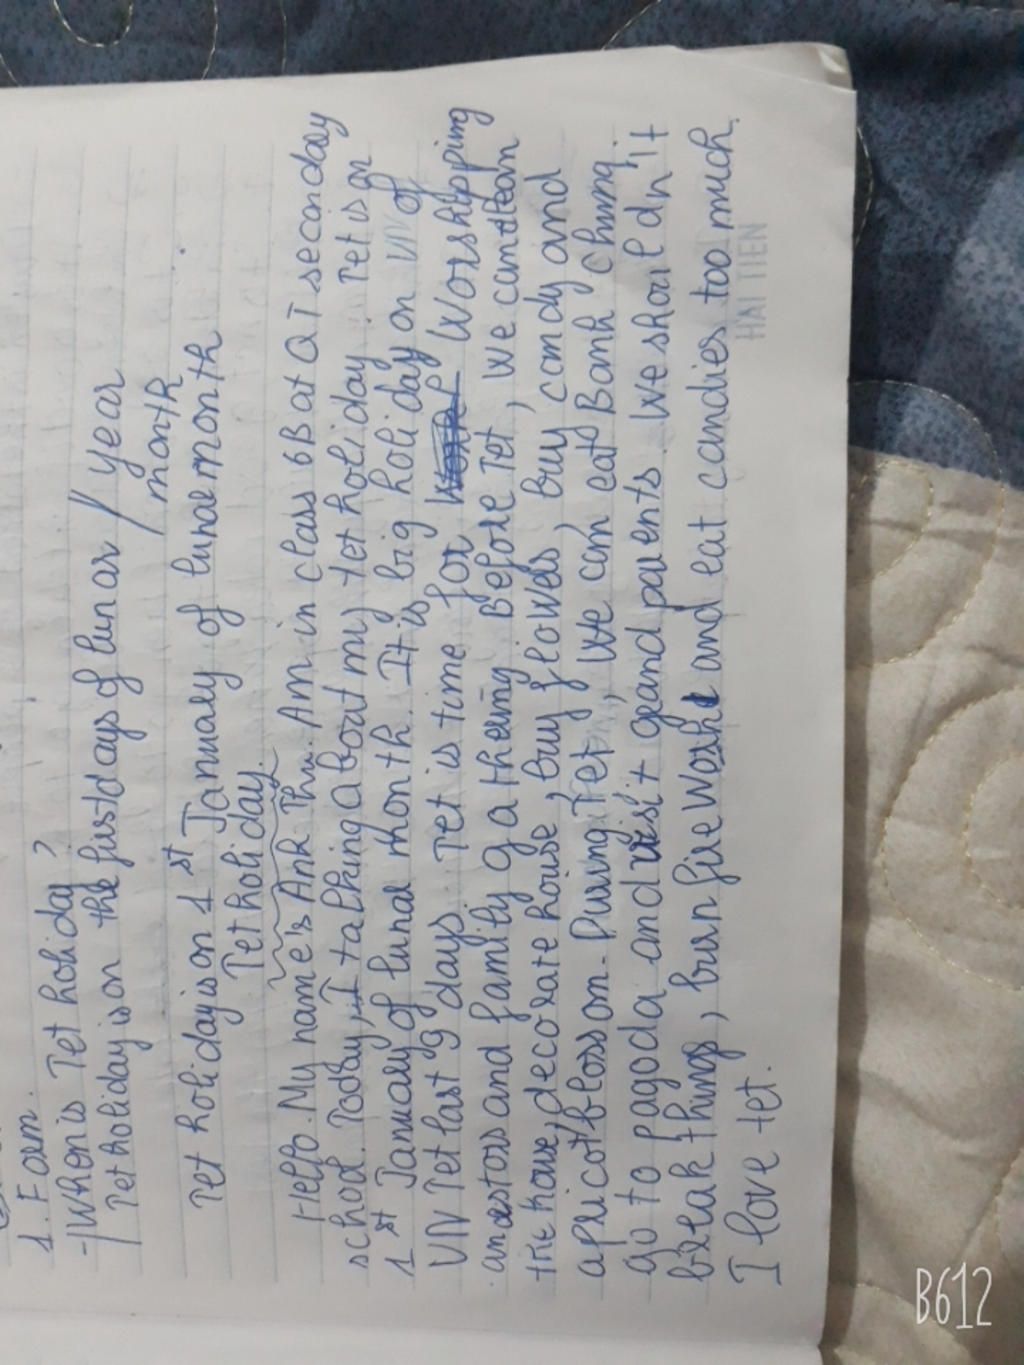 1. Form.
-/When is Tet holiday?
Tet holiday is on the first days of lunar / year
/ month
Tet holiday is on 1st January of lunar month
Tet holiday.
Hello. My name's Anh Thu. Am in class 6B at QT seconday
school. Today, I talking about my tet holiday. Tet is on
1st January of lunar month. It is big holiday on VN of
VN Tet last 9 days. Tet is time for Worshipping
ancestors and family gatherring Before Tet, we can clean
the house, decorate house, buy flowers, buy candy and
apricot blossom. During Tet, we can eat Banh chung.
go to pagoda and visit grand parents. We should n't
break things, burn firework and eat candies too much.
I love tet.
HAI TIEN
B612